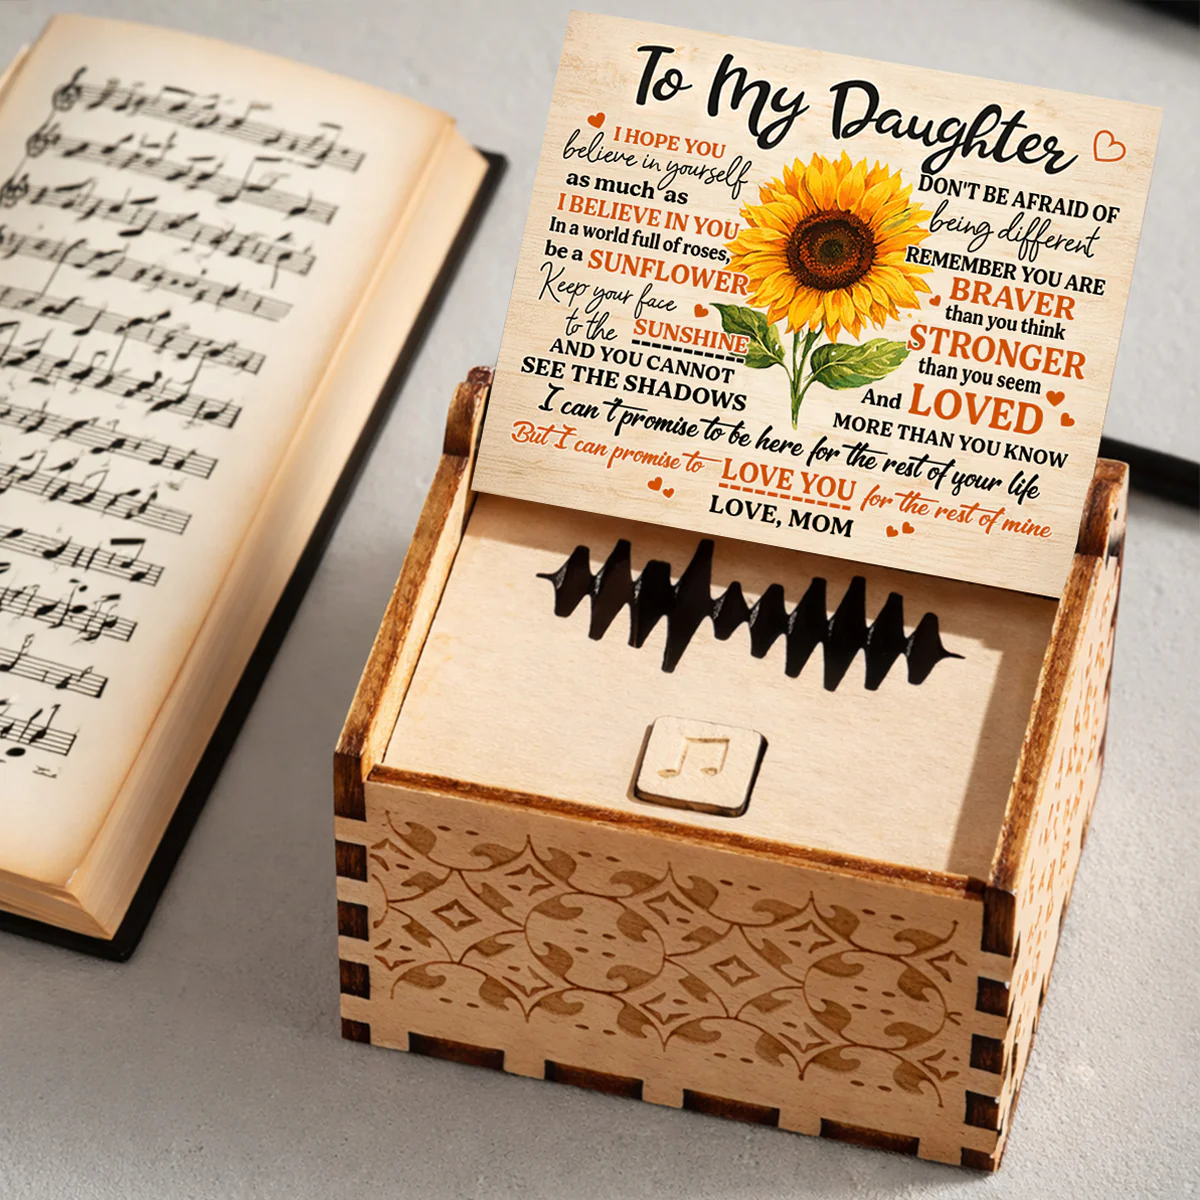 To My Daughter
I HOPE YOU
believe in yourself
as much as
I BELIEVE IN YOU
In a world full of roses,
be a SUNFLOWER
Keep your face
to the SUNSHINE
AND YOU CANNOT
SEE THE SHADOWS
DON'T BE AFRAID OF
being different
REMEMBER YOU ARE
BRAVER
than you think
STRONGER
than you seem
And LOVED
MORE THAN YOU KNOW
I can't promise to be here for the rest of your life
But I can promise to LOVE YOU for the rest of mine
LOVE, MOM